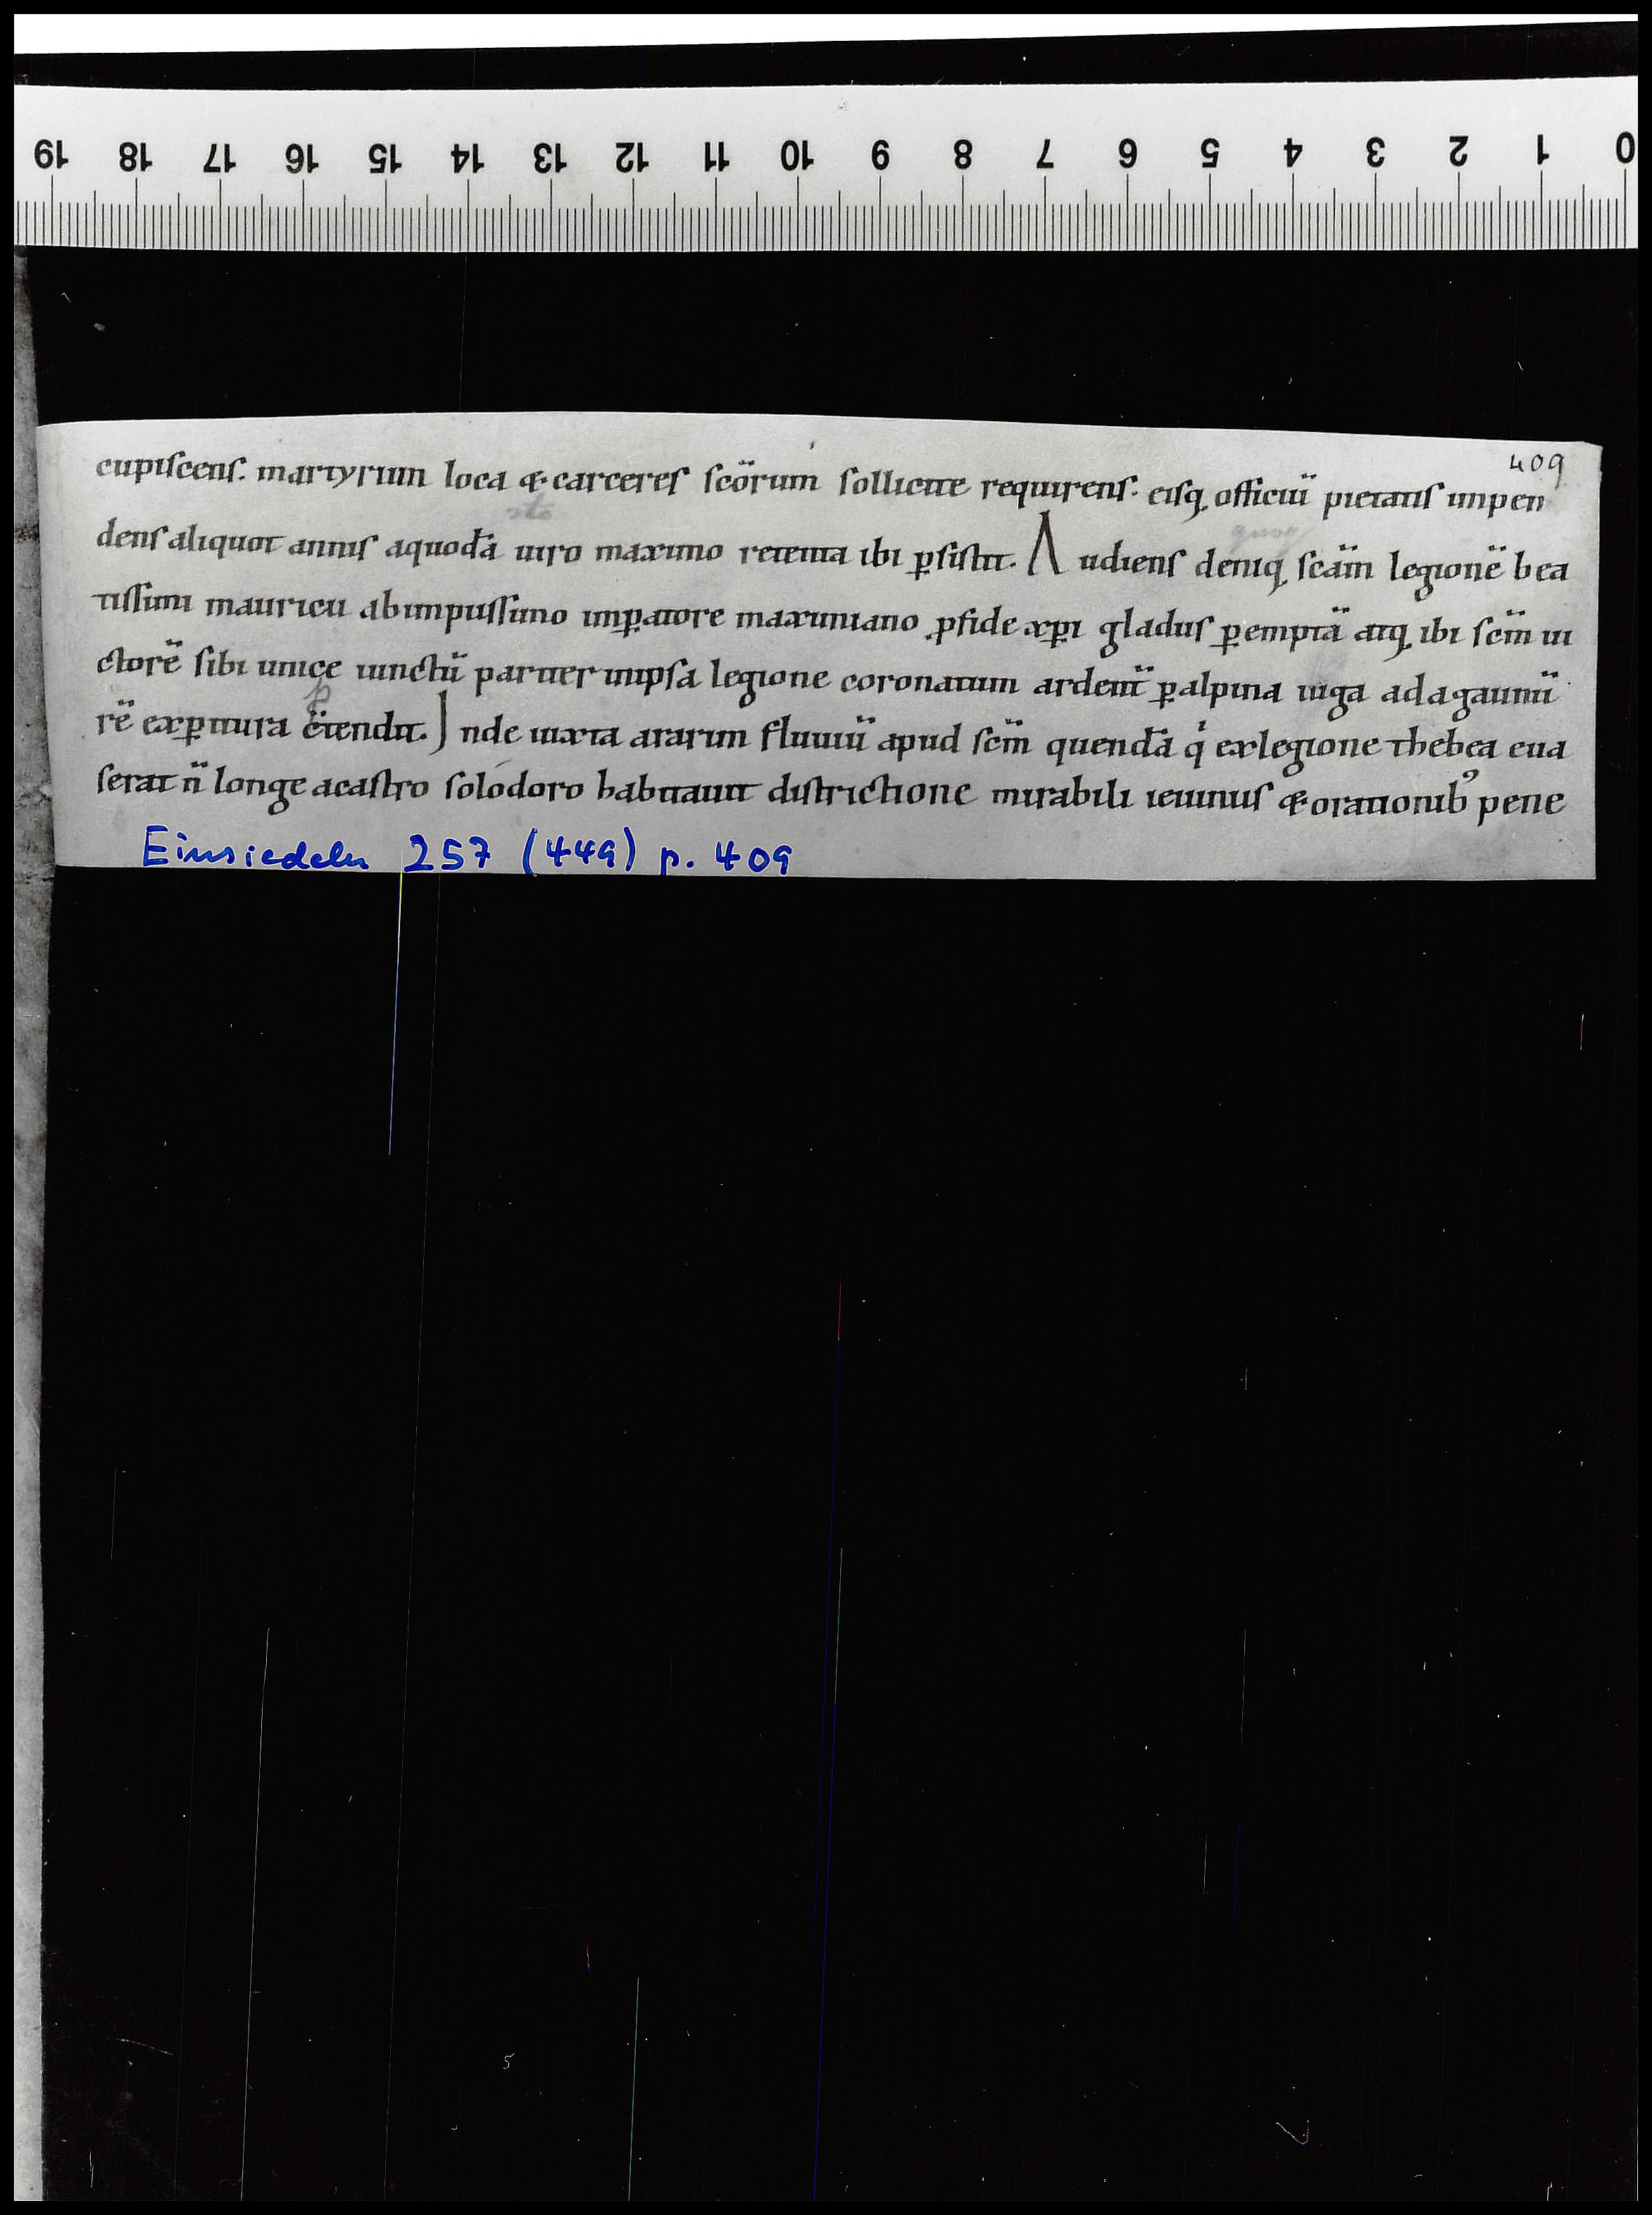 19 18 17 16 15 14 13 12 11 10 9 8 7 6 5 4 3 2 1 0
409
cupiscens. martyrum loca & carceres scörum sollicite requirens. eisq; officiū pietatis inpen
dens aliquot annis aquodā uiro maximo retenta ibi ꝑsistit. Audiens deniq; scām legionē bea
tissimi mauricii abimpiissimo imꝑatore maximiano ꝓfide xp̄i gladiis ꝑemptā atq; ibi scm̄ ui
ctorē sibi unicę iunctū pariter inipsa legione coronatum ardent̄ ꝑalpina iuga adagaunū
rē exꝑitura c̄tendit. Inde iuxta ararim fluuiū apud scm̄ quendā qͥ exlegione thebea eua
serat n̄ longe acastro solodoro habitauit districtione mirabili ieiuniis & orationibꝰ pene
Einsiedeln 257 (449) p. 409